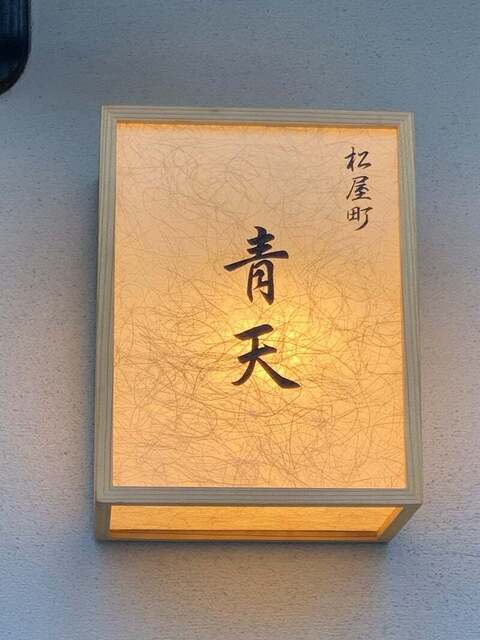 松屋町
青天